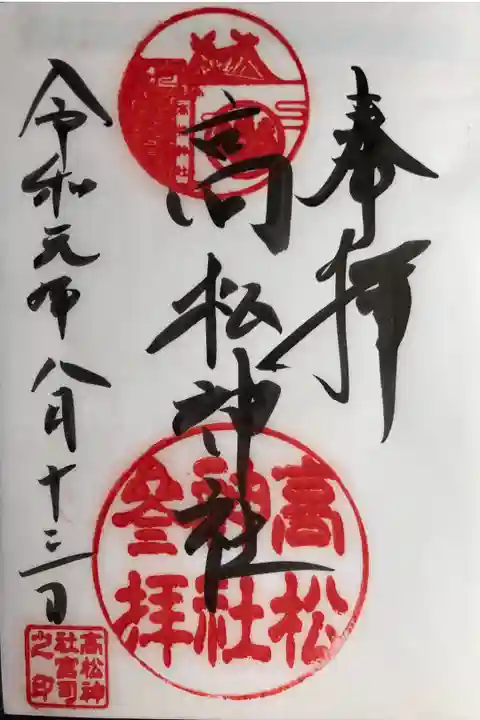 奉拝
高松神社
高松
神社
参拝
令和元年八月十三日
高松神
社宮司
之印